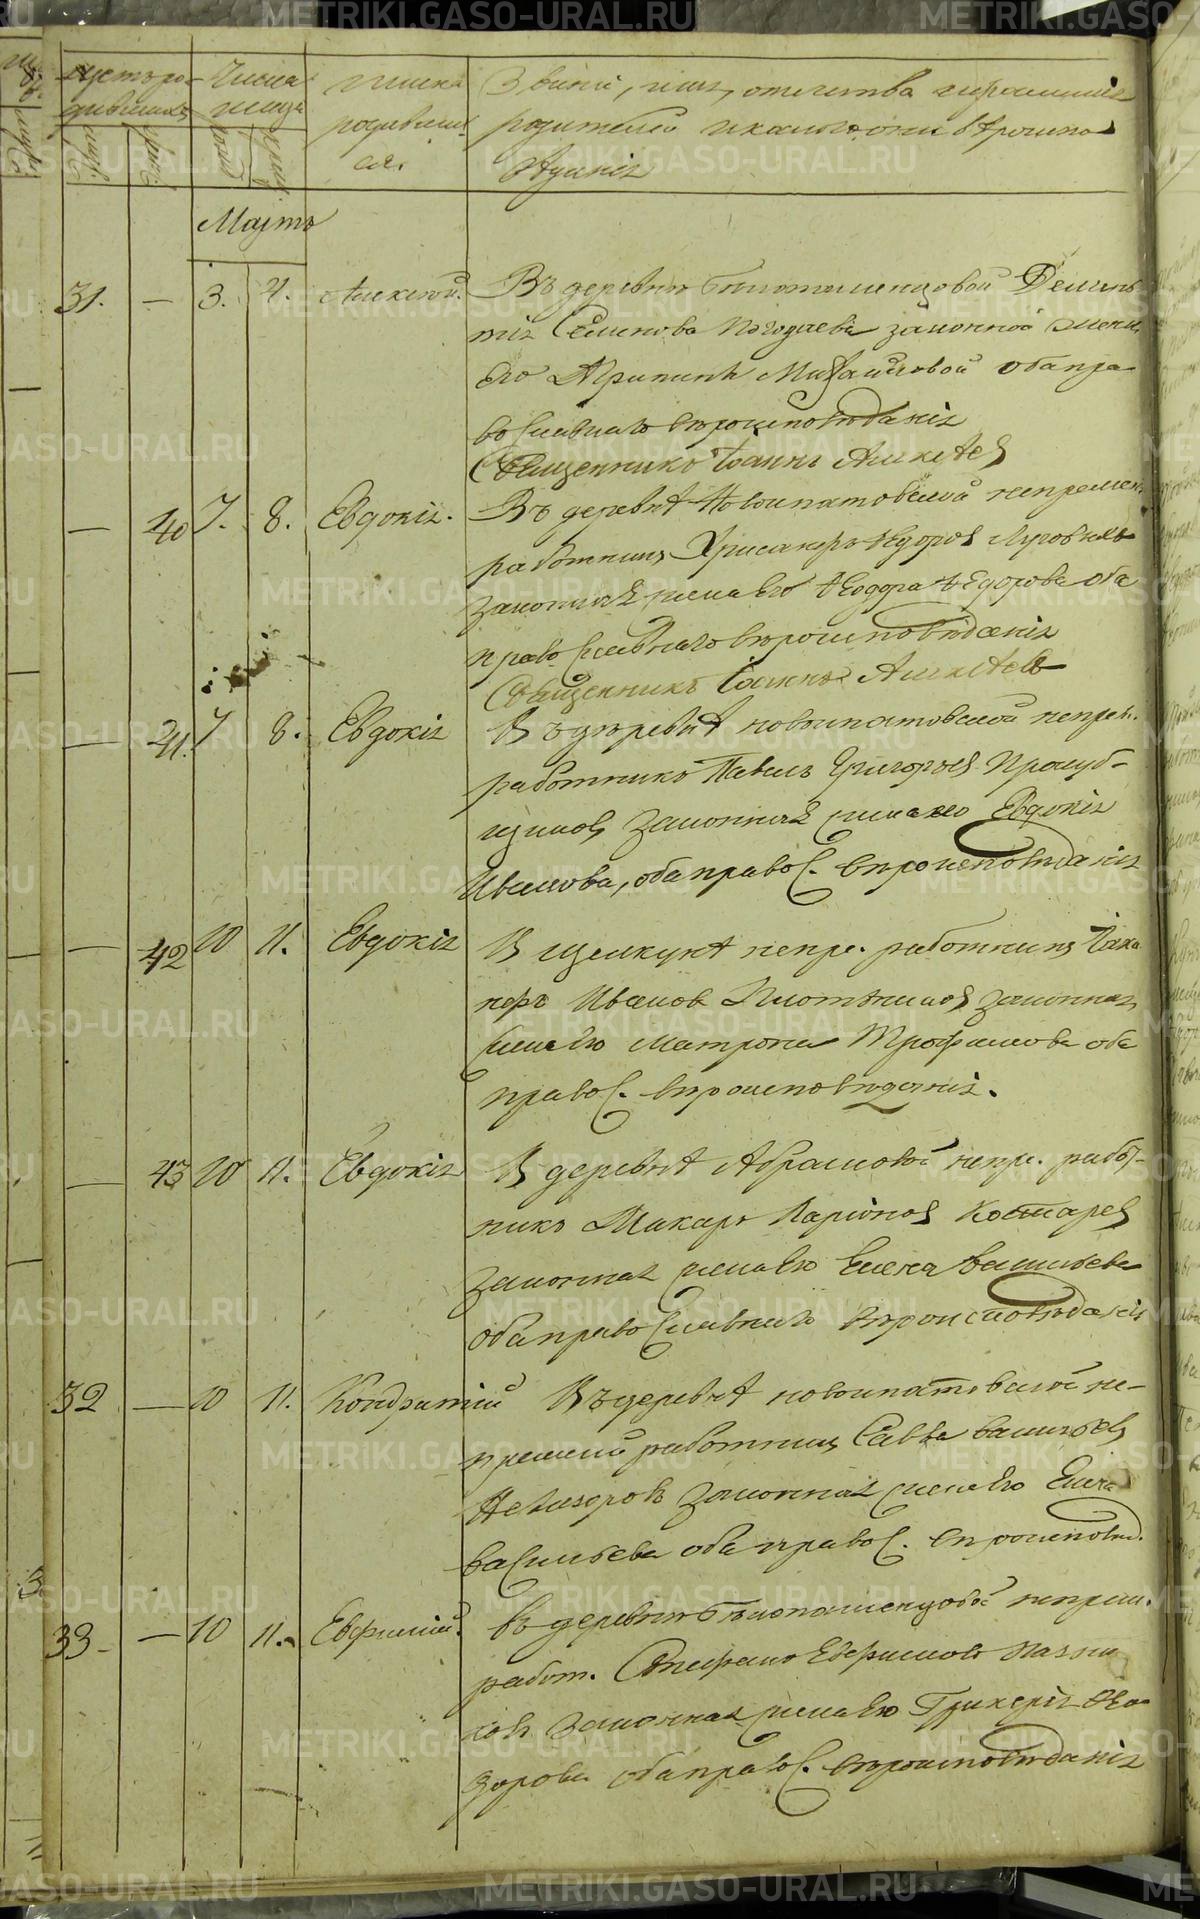 METRIKI.GASO-URAL.RU
Счетъ ро-
дившихся
Числа
месяца
имена
родивших
ся.
Званiи, имя, отечества
родителей и какого они вѣроиспо
вѣданiя
Мартъ
31. — 3. 4. Алексѣй.
Въ деревнѣ Демень
тiя Семенова Погодаева законной жены
его Агрипины Михайловой оба пра-
вославнаго вѣроисповѣданiя
Священникъ Iоаннъ Алексѣев
— 40 7. 8. Евдокiя.
Въ деревнѣ Новоипатовской непремен.
работникъ Хрисанфъ Ѳедоров Луговыхъ
законная жена его Ѳеодора Ѳедорова оба
православнаго вѣроисповѣданiя
Священникъ Iоаннъ Алексѣевъ
— 41. 7 8. Евдокiя
Въ деревнѣ новоипатовской непрем.
работникъ Павелъ Григорьев
законная жена его Евдокiя
Иванова, оба правос. вѣроисповѣданiя
— 42 10 11. Евдокiя
В щелкунѣ непре. работникъ
Иванов законная
жена его Матрона Трофимова оба
правос. вѣроисповѣданiя.
— 43 10 11. Евдокiя
В деревнѣ Абрамовой непре. работ-
никъ Макаръ Ларiонов Костарев
законная жена его Елена Васильева
оба православнаго вѣроисповѣданiя
32 — 10 11. Кондратiй
Въ деревнѣ новоипатовской не-
пременный работникъ Савва васильев
законная жена его Елена
васильева оба правос. вѣроисповѣд.
33 — 10 11. Евфимiй.
въ деревнѣ непрем.
работ. Стефанъ Евфимовъ
законная жена его Гликерiя Ѳео-
дорова оба правос. вѣроисповѣданiя